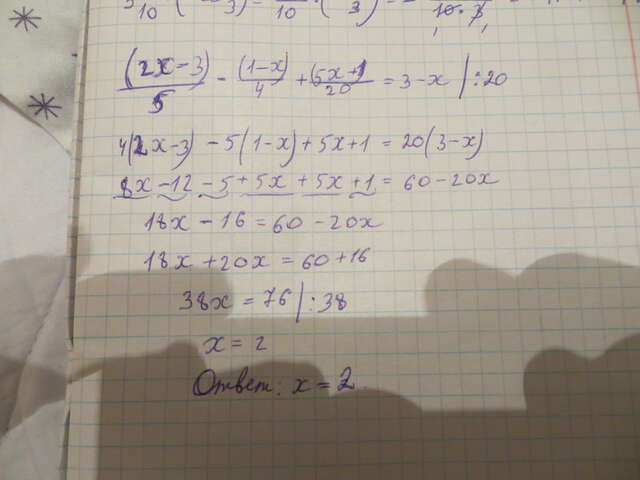 (2x-3)/5 - (1-x)/4 + (5x+1)/20 = 3-x |:20
4(2x-3) -5(1-x)+5x+1 = 20(3-x)
8x -12 -5+5x +5x +1 = 60-20x
18x -16 = 60 -20x
18x +20x = 60+16
38x = 76 |:38
x = 2
Ответ: x = 2